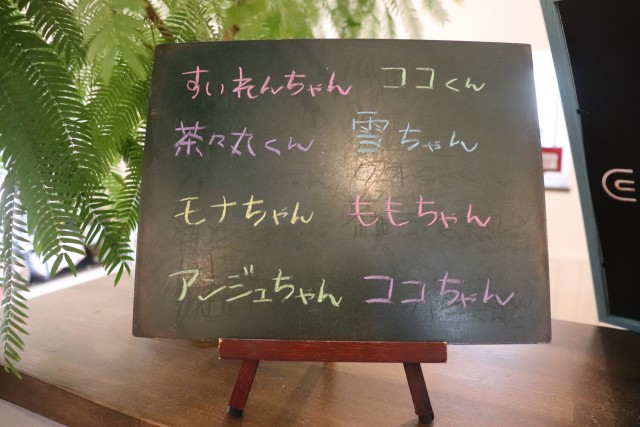 すいれんちゃん ココくん
茶々丸くん 雪ちゃん
モナちゃん ももちゃん
アンジュちゃん ココちゃん